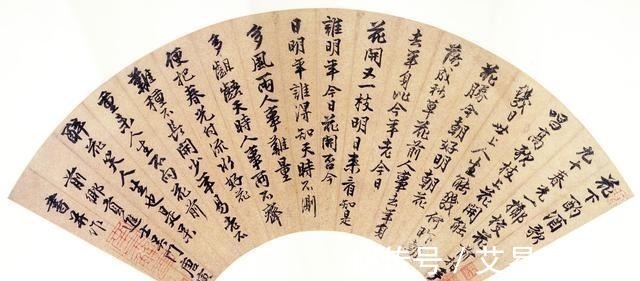 花下酌酒歌
九十春光一擲梭花前酌酒
唱高歌枝上花開能
幾日世上人生能幾何
花勝今朝好明朝花
落成秋草花前人是去年身
去年身比今年老今日
花開又一枝明日来看知是
誰明年今日花開否今
日明年誰得知天時不測
多風雨人事難量
多齟齬天時人事兩不齊
便把春光付流水好花
難種不長開少年易老不
重来人生不向花前
醉花笑人生也是呆
前鄉貢進士吳門唐寅
書舊作
号/艾